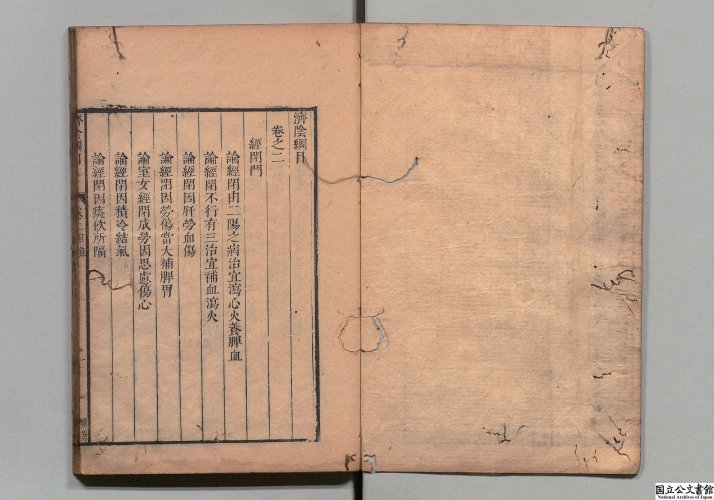 濟陰綱目
卷之二
經閉門
論經閉由二陽之病治宜瀉心火養脾血
論經閉不行有三治宜補血瀉火
論經閉因肝勞血傷
論經閉因勞傷當大補脾胃
論室女經閉成勞因思慮傷心
論經閉因積冷結氣
論經閉因痰飲所隔
濟陰綱目
国立公文書館
National Archives of Japan